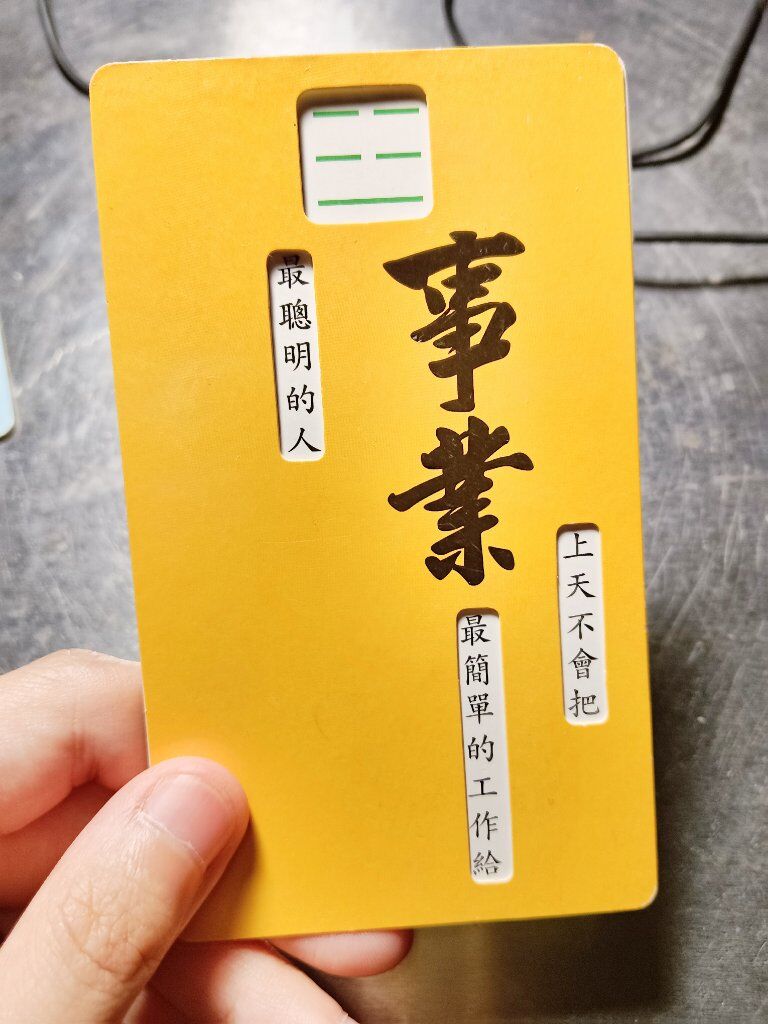 事業
上天不會把
最簡單的工作給
最聰明的人